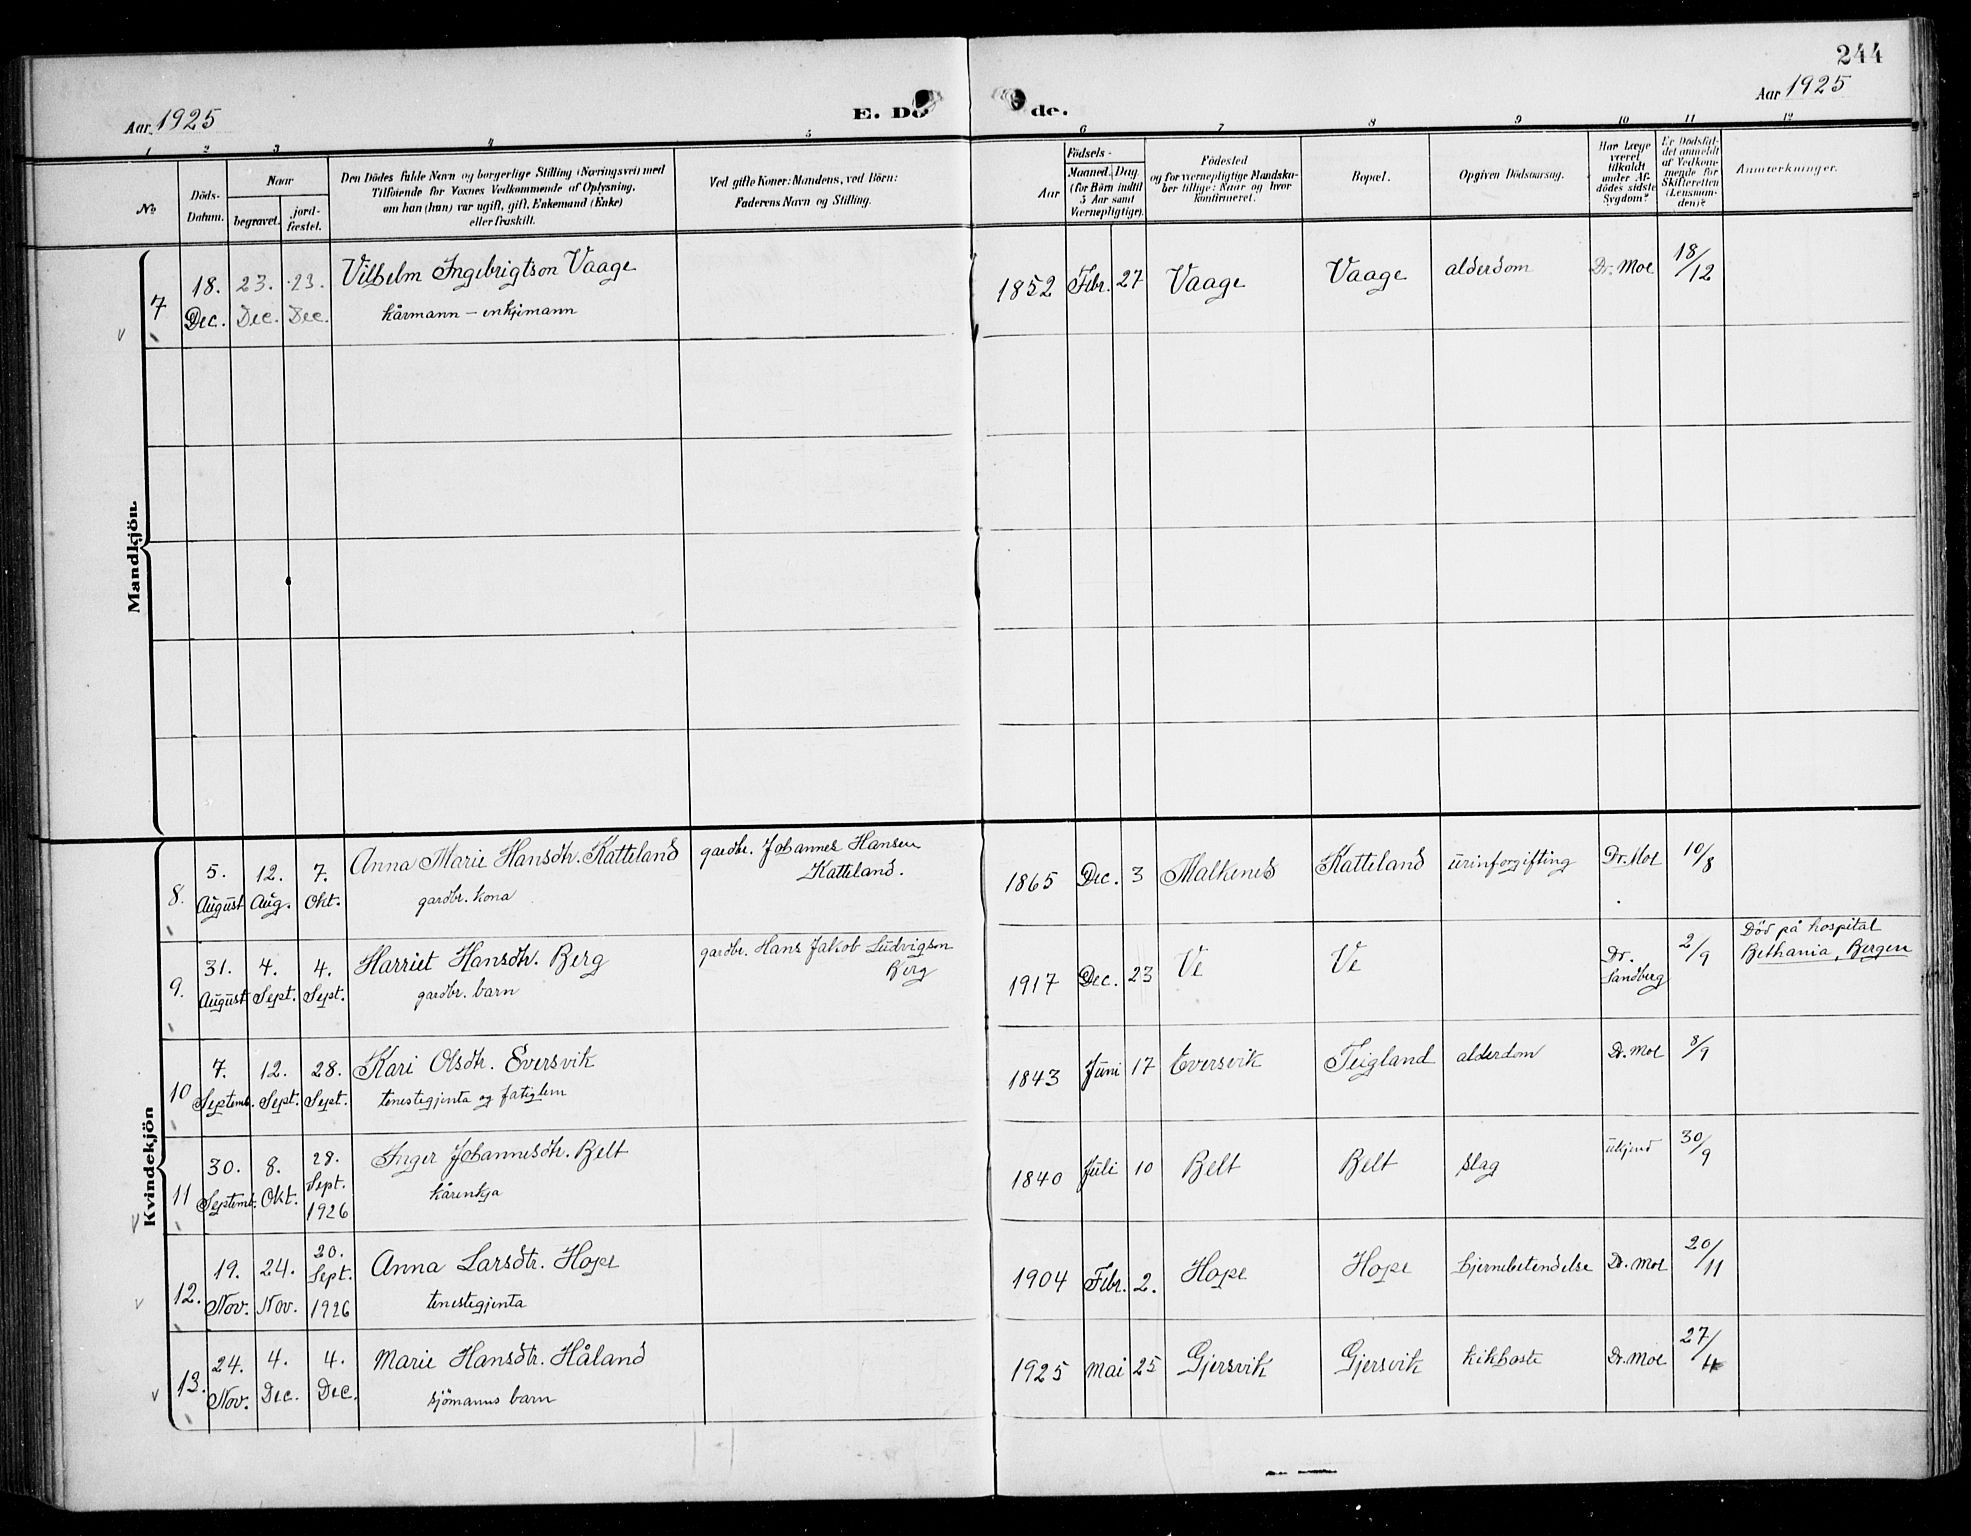 244
Aar 1925
E. Dö de.
Aar 1925
1 2 3 4 5 6 7 8 9 10 11 12
No
Döds-
Datum.
Naar
begravet.
jord-
fæstet.
Den Dödes fulde Navn og borgerlige Stilling (Næringsvei) med
Tilföiende for Voxnes Vedkommende af Oplysning,
om han (hun) var ugift, gift, Enkemand (Enke)
eller fraskilt.
Ved gifte Koner: Mandens, ved Börn:
Faderens Navn og Stilling.
Födsels-
Aar
Maaned. Dag.
(for Börn indtil
5 Aar samt
Værnepligtige).
Födested
og for værnepligtige Mandska-
ber tillige: Naar og hvor
konfirmeret.
Bopæl.
Opgiven Dödsaarsag.
Har Læge
været
tilkaldt
under Af-
dödes sidste
Sygdom?
Er Dödsfal-
det anmeldt
af Vedkom-
mende for
Skifteretten
(Lensman-
den)?
Anmærkninger.
Mandkjön.
7 18. Dec. 23. Dec. 23. Dec. Vilhelm Ingebrigtson Vaage 1852 Febr. 27 Vaage Vaage alderdom Dr. Moe 18/12
kårmann – enkjemann
Kvindekjön
8. 5. August 12. Aug. 7. Okt. Anna Marie Hansdtr. Katteland gardbr. Johannes Hansen 1865 Dec. 3 Malkenes Katteland urinforgifting Dr. Moe 10/8
gardbr. kona Katteland.
9. 31. August 4. Sept. 4. Sept. Harriet Hansdtr. Berg gardbr. Hans Jakob Ludvigson 1917 Dec. 23 Ve Ve Dr. Sandberg 2/9 Död på hospital
gardbr. barn Berg Bethania, Bergen
10 7. Septemb. 12. Sept. 28. Sept. Kari Olsdtr. Eversvik 1843 Juni 17 Eversvik Teigland alderdom Dr. Moe 8/9
tenestegjenta og fatiglem
11 30. Septemb. 8. Okt. 28. Sept. 1926 Inger Johannesdtr. Belt 1840 Juli 10 Belt Belt slag ukjend 30/9
kårenkja
12. 19. Nov. 24. Nov. 20. Sept. 1926 Anna Larsdtr. Hope 1904 Febr. 2. Hope Hope hjernebetendelse Dr. Moe 20/11
tenestegjenta
13. 24. Nov. 4. Dec. 4. Dec. Marie Hansdtr. Håland 1925 Mai 25 Gjersvik Gjersvik kikhoste Dr. Moe 27/11
sjömanns barn